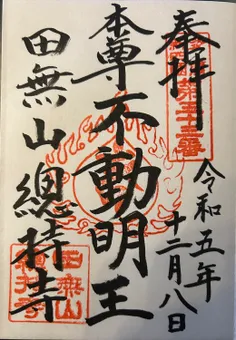 奉拝
令和五年
十二月八日
本尊 不動明王
田無山 總持寺
田無山
總持寺